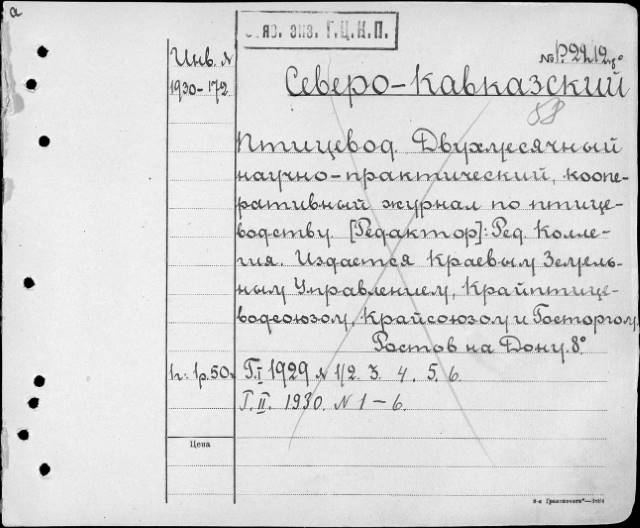 а
яз. экз. Г.Ц.К.П.
Инв. №
1930-172
Северо-Кавказский
Птицевод. Двухмесячный
научно-практический, коопе-
ративный журнал по птице-
водству. [Редактор]: Ред. Колле-
гия. Издается Краевым Земель-
ным Управлением, Крайптице-
водсоюзом, Крайсоюзом и Госторгом.
Ростов на Дону. 8°.
1р.50к Г.I 1929 № 1/2. 3. 4. 5. 6.
Г.II. 1930. № 1-6.
Цена